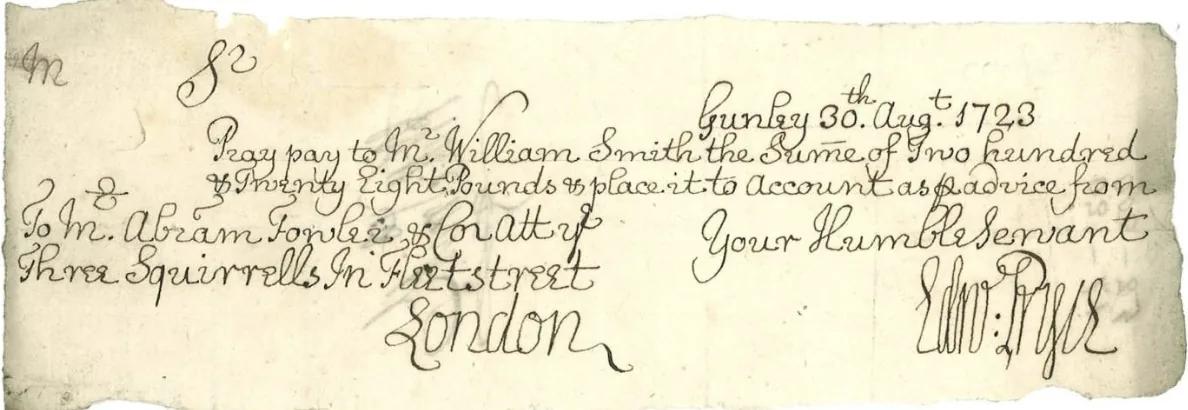 M
Sr
Gunley 30th. Augt. 1723
Pray pay to Mr. William Smith the Sum̅e of Two hundred
& Twenty Eight Pounds & place it to Account as ꝑ advice from
To Mr. Abram Fowler & Co: Att ye
Your Humble Servant
Three Squirrells In Fleetstreet
London
Edw: Pryce